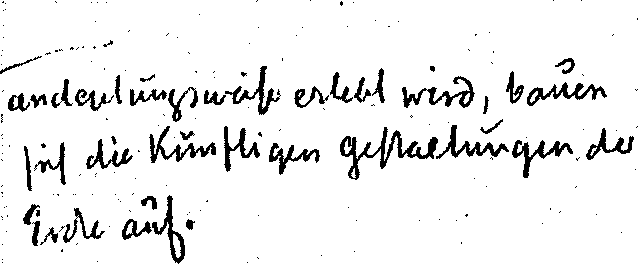 andeutungsweise erlebt wird, bauen
sich die künftigen Gestaltungen der
Erde auf.